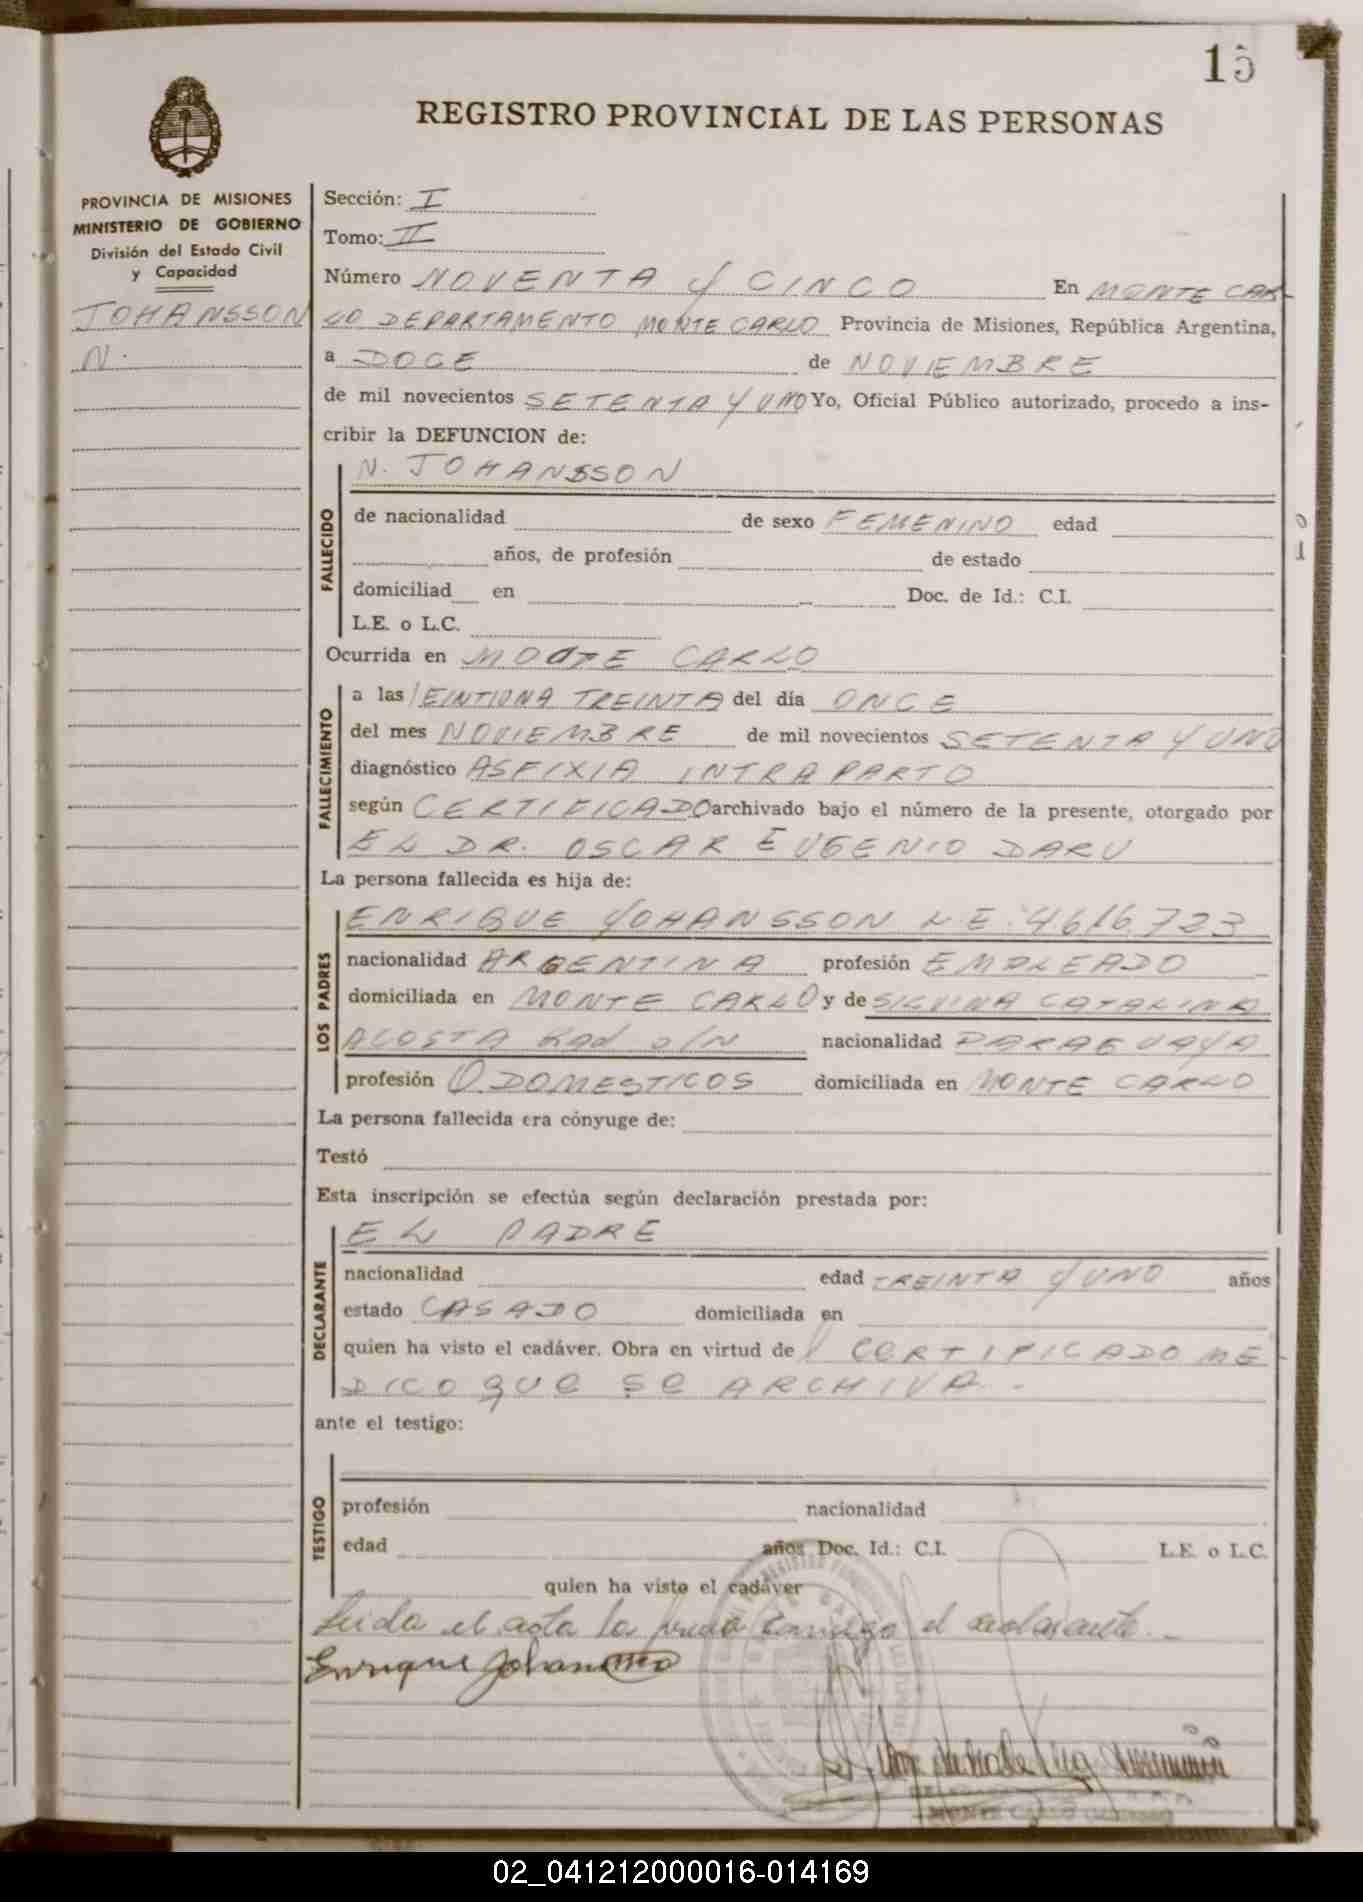 15
REGISTRO PROVINCIAL DE LAS PERSONAS
PROVINCIA DE MISIONES
MINISTERIO DE GOBIERNO
División del Estado Civil
y Capacidad
JOHANSSON
N.
Sección: I
Tomo: II
Número NOVENTA Y CINCO En MONTE CAR-
LO DEPARTAMENTO MONTE CARLO Provincia de Misiones, República Argentina,
a DOCE de NOVIEMBRE
de mil novecientos SETENTA Y UNO Yo, Oficial Público autorizado, procedo a ins-
cribir la DEFUNCION de:
FALLECIDO
N. JOHANSSON
de nacionalidad de sexo FEMENINO edad
años, de profesión de estado
domiciliad en Doc. de Id.: C.I.
L.E. o L.C.
Ocurrida en MONTE CARLO
FALLECIMIENTO
a las VEINTIUNA TREINTA del día ONCE
del mes NOVIEMBRE de mil novecientos SETENTA Y UNO
diagnóstico ASFIXIA INTRA PARTO
según CERTIFICADO archivado bajo el número de la presente, otorgado por
EL DR. OSCAR EUGENIO DARU
La persona fallecida es hija de:
LOS PADRES
ENRIQUE YOHANSSON L E: 4.616.723
nacionalidad ARGENTINA profesión EMPLEADO
domiciliada en MONTE CARLO y de SILVINA CATALINA
ACOSTA nacionalidad PARAGUAYA
profesión Q. DOMESTICOS domiciliada en MONTE CARLO
La persona fallecida era cónyuge de:
Testó
Esta inscripción se efectúa según declaración prestada por:
DECLARANTE
EL PADRE
nacionalidad edad TREINTA Y UNO años
estado CASADO domiciliada en
quien ha visto el cadáver. Obra en virtud de CERTIFICADO ME-
DICO QUE SE ARCHIVA.-
ante el testigo:
TESTIGO
profesión nacionalidad
edad años Doc. Id.: C.I. L.E. o L.C.
quien ha visto el cadáver
Leida el acta la firma conmigo el declarante.-
Enrique Johansson
MONTE CARLO
02_041212000016-014169